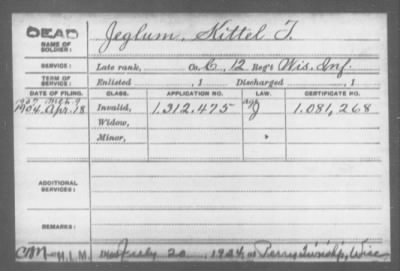 DEAD
NAME OF SOLDIER: Jeglum, Kittel T.
SERVICE: Late rank, Co. C, 12 Reg't Wis. Inf.
TERM OF SERVICE: Enlisted , 1 Discharged , 1
DATE OF FILING. CLASS. APPLICATION NO. LAW. CERTIFICATE NO.
1904, Apr. 18 Invalid, 1.312.475 1.081,268
Widow,
Minor,
ADDITIONAL SERVICES:
REMARKS:
Died July 20, 1924, at Perry Twship, Wisc